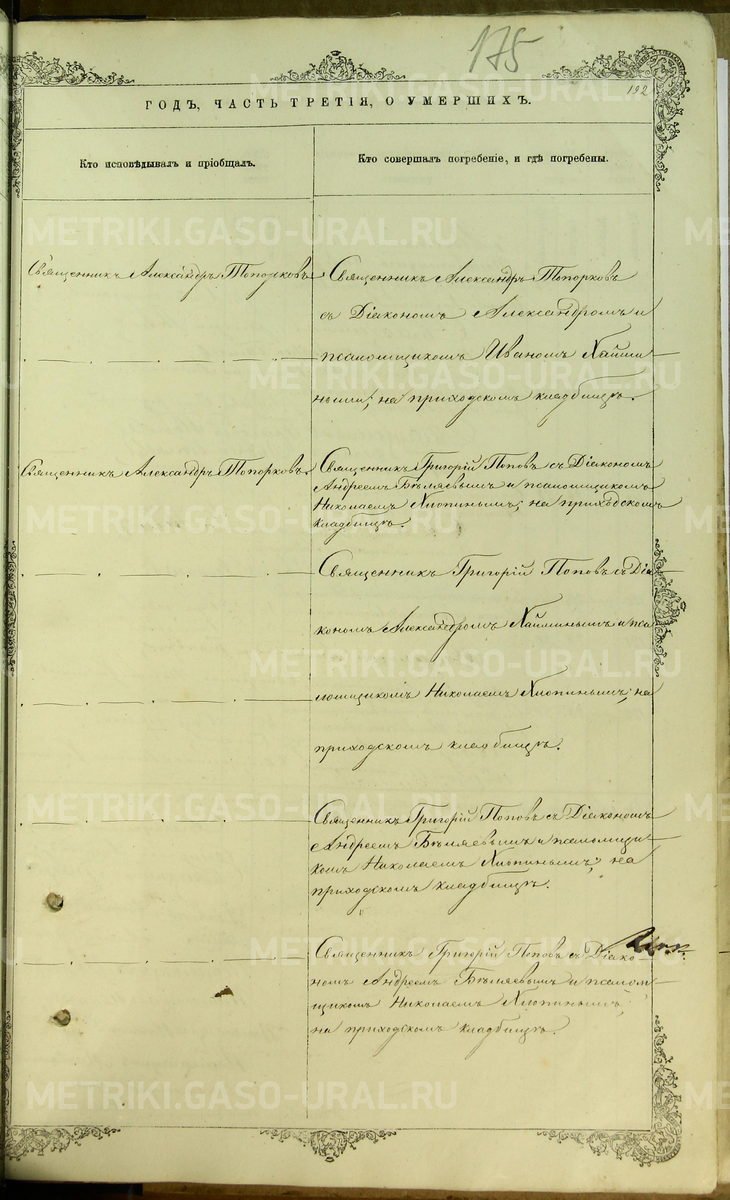 175
192
ГОДЪ, ЧАСТЬ ТРЕТІЯ, О УМЕРШИХЪ.
Кто исповѣдывалъ и пріобщалъ.
Кто совершалъ погребеніе, и гдѣ погребены.
Священникъ Александръ Топорковъ
Священникъ Александръ Топорковъ
съ Діакономъ Александромъ и
псаломщикомъ Иваномъ Хайми-
ными; на приходскомъ кладбищѣ.
Священникъ Александръ Топорковъ
Священникъ Григорій Поповъ съ Діакономъ
Андреемъ Бѣляевымъ и псаломщикомъ
Николаемъ Хиопинымъ; на приходскомъ
кладбищѣ.
Священникъ Григорій Поповъ съ Діа-
кономъ Александромъ Хайминымъ и пса-
ломщикомъ Николаемъ Хиопинымъ; на
приходскомъ кладбищѣ.
Священникъ Григорій Поповъ съ Діакономъ
Андреемъ Бѣляевымъ и псаломщи-
комъ Николаемъ Хиопинымъ; на
приходскомъ кладбищѣ.
Священникъ Григорій Поповъ съ Діако-
номъ Андреемъ Бѣляевымъ и псалом-
щикомъ Николаемъ Хиопинымъ;
на приходскомъ кладбищѣ.
METRIKI.GASO-URAL.RU